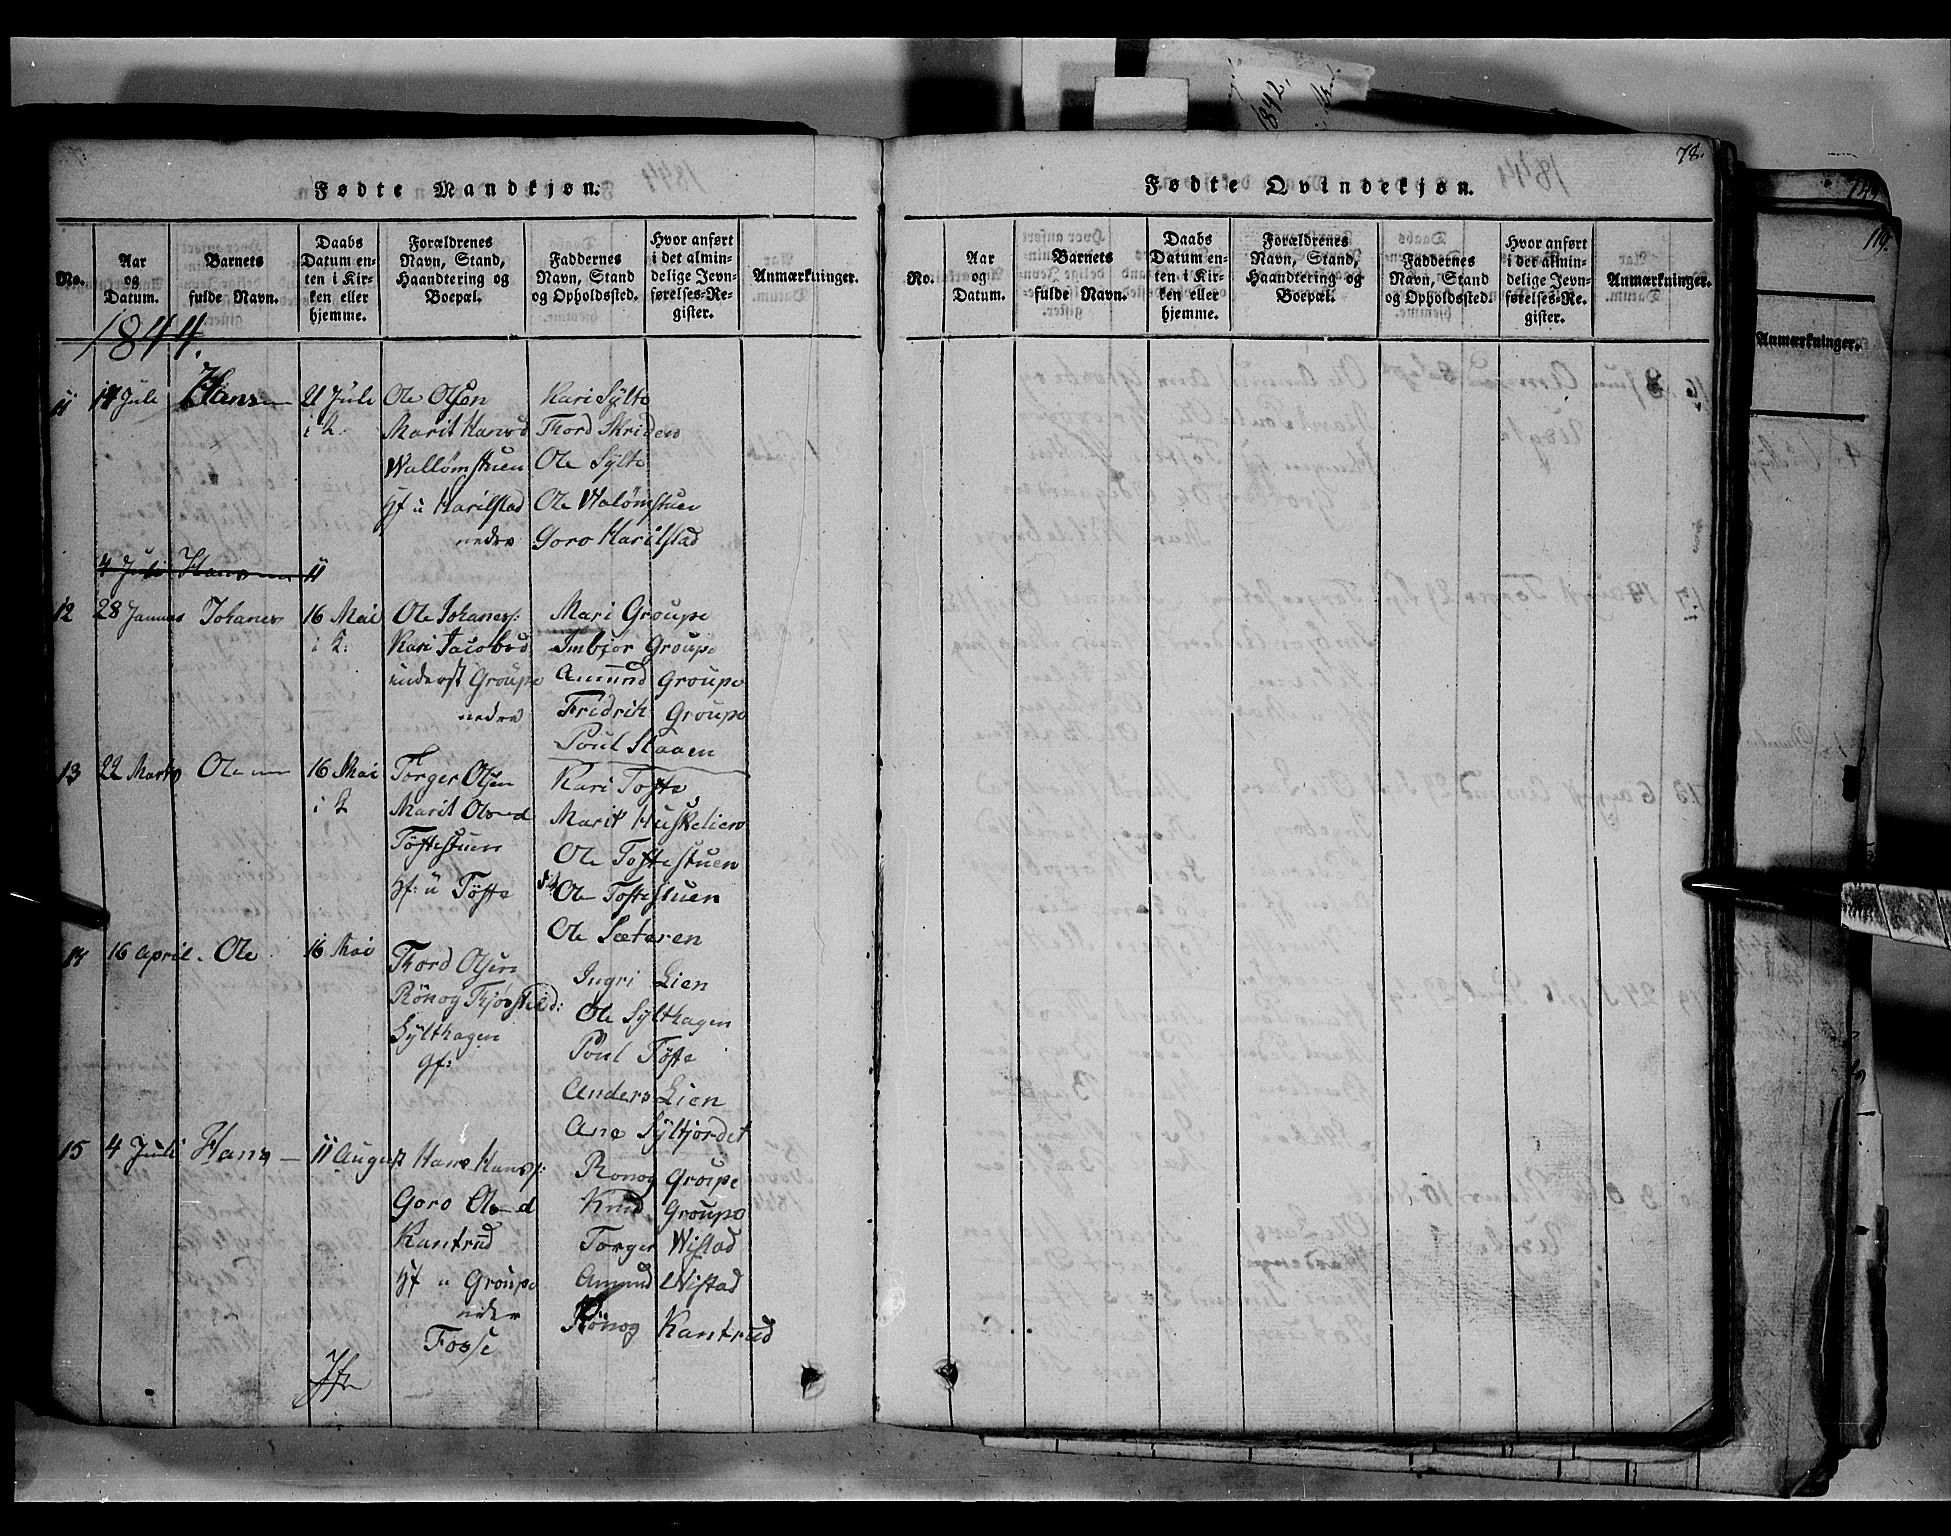 Fødte Mandkjøn.
No.
Aar og Datum.
Barnets fulde Navn.
Daabs Datum enten i Kirken eller hjemme.
Forældrenes Navn, Stand, Haandtering og Boepæl.
Faddernes Navn, Stand og Opholdssted.
Hvor anført i det almindelige Jevnførelses-Register.
Anmærkninger.
1844.
11 14 Juli Hans 21 Juli Ole Olsen Kari Sylte
i K. Marit Hansd Thord Skriden
Wallømstuen Ole Sylte
Gf u Harilstad Ole Walømstuen
nedre Goro Harilstad
4 Juli Hans 11
12 28 Januar Johanes 16 Mai Ole Johanes: Mari Groupe
i K: Kari Jacobsd Imbjør Groupe
inderst Groupe Amund Groupe
nedre Fridrik Groupe
Poul Staaen
13 22 Marts Ole 16 Mai Torger Olsen Kari Tofte
i K Marit Olsd Marit Huskelien
Tøftestuen Ole Toftestuen
Gf: u Tøfte Ole Toftestuen
Ole Sæteren
14 16 April Ole 16 Mai Thord Olsen Ingri Lien
Rönog Thjøstild: Ole Sylthagen
Sylthagen Poul Tøfte
Gf: Anders Lien
Ane Syltjordet
15 4 Juli Hans 11 August Hans Hans: Ronog Groupe
Goro Olsd Knud Groupe
Kantrud Torger Wistad
Gf u Groupe Amund Wistad
nedre Rönog Kantrud
Fosse
78.
Fødte Qvindekjøn.
No.
Aar og Datum.
Barnets fulde Navn.
Daabs Datum enten i Kirken eller hjemme.
Forældrenes Navn, Stand, Haandtering og Boepæl.
Faddernes Navn, Stand og Opholdssted.
Hvor anført i det almindelige Jevnførelses-Register.
Anmærkninger.
1842,
119.
Anmærkninger.